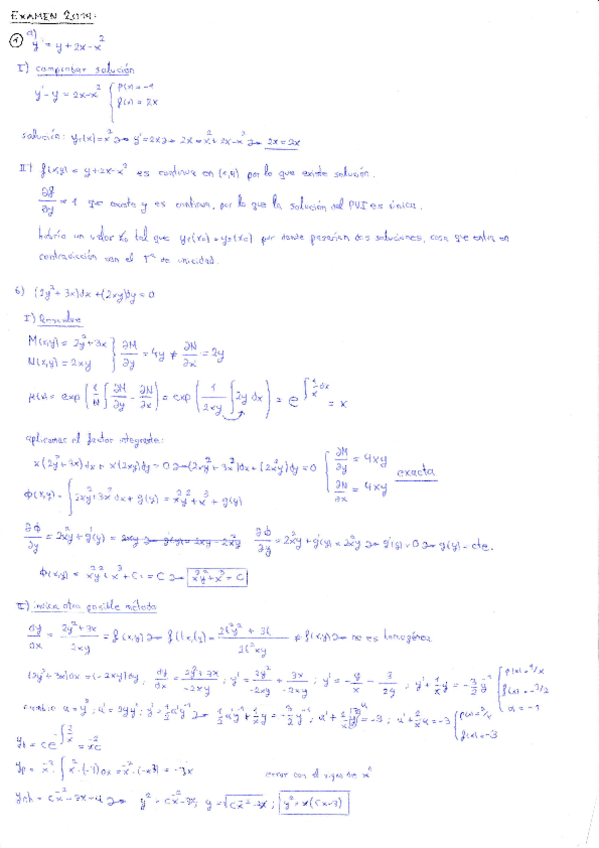 EXAMEN 2019:
① a) y' = y + 2x - x²
I) comprobar solución
y' - y = 2x - x² { p(x) = -1
f(x) = 2x
solución: y₁(x) = x² → y' = 2x → 2x = x² + 2x - x² → 2x = 2x
II) f(x,y) = y + 2x - x² es continua en (x,y) por lo que existe solución.
∂f/∂y = 1 que existe y es continua, por lo que la solución del PVI es única.
habría un valor x₀ tal que y₁(x₀) = y₂(x₀) por donde pasarían dos soluciones, cosa que entra en
contradicción con el Tª de unicidad.
b) (2y² + 3x)dx + (2xy)dy = 0
I) Resolver
M(x,y) = 2y² + 3x
N(x,y) = 2xy } ∂M/∂y = 4y ≠ ∂N/∂x = 2y
μ(x) = exp(∫ 1/N [∂M/∂y - ∂N/∂x]) = exp(1/2xy ∫ 2y dx) = e^∫ 1/x dx = x
aplicamos el factor integrante:
x(2y² + 3x)dx + x(2xy)dy = 0 → (2xy² + 3x²)dx + (2x²y)dy = 0 { ∂M/∂y = 4xy
∂N/∂x = 4xy exacta
Φ(x,y) = ∫ 2xy² + 3x² dx + g(y) = x²y² + x³ + g(y)
∂Φ/∂y = 2x²y + g'(y) = 2xy → g'(y) = 2xy - 2x²y ∂Φ/∂y = 2x²y + g'(y) = 2x²y → g'(y) = 0 → g(y) = cte.
Φ(x,y) = x²y² + x³ + C₁ = C → x²y² + x³ = C
II) indica otro posible método
dy/dx = 2y² + 3x / 2xy = f(x,y) → f(tx,ty) = 2t²y² + 3t / 2t²xy ≠ f(x,y) → no es homogénea
(2y² + 3x)dx = (-2xy)dy; dy/dx = 2y² + 3x / -2xy; y' = 2y²/-2xy + 3x/-2xy; y' = -y/x - 3/2y; y' + 1/x y = -3/2 y⁻¹ { p(x) = 1/x
f(x) = -3/2
α = -1
cambio u = y²; u' = 2yy'; y' = 1/2 u'y⁻¹ → 1/2 u'y⁻¹ + 1/x y = -3/2 y⁻¹; u' + 2/x y² = -3; u' + 2/x u = -3 { p(x) = 2/x
f(x) = -3
yh = ce^-∫ 2/x = x⁻²c
yp = x⁻² · ∫ x² · (-3)dx = x⁻² · (-x³) = -3x
error con el signo de x²
ynh = cx⁻² - 3x = u → y² = cx⁻² - 3x; y = √cx⁻² - 3x; y² = x(cx - 3)